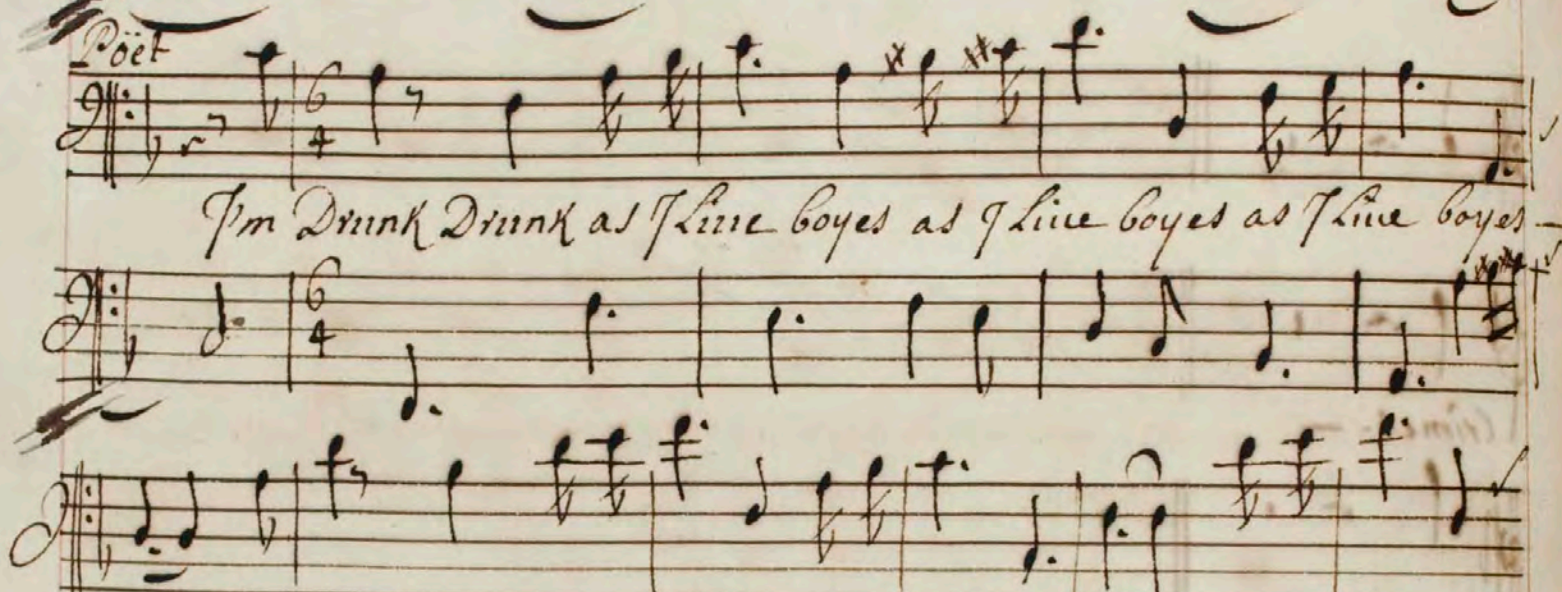 Pöet
6
4
I'm Drunk Drunk as I Live boyes as I Live boyes as I Live boyes
6
4